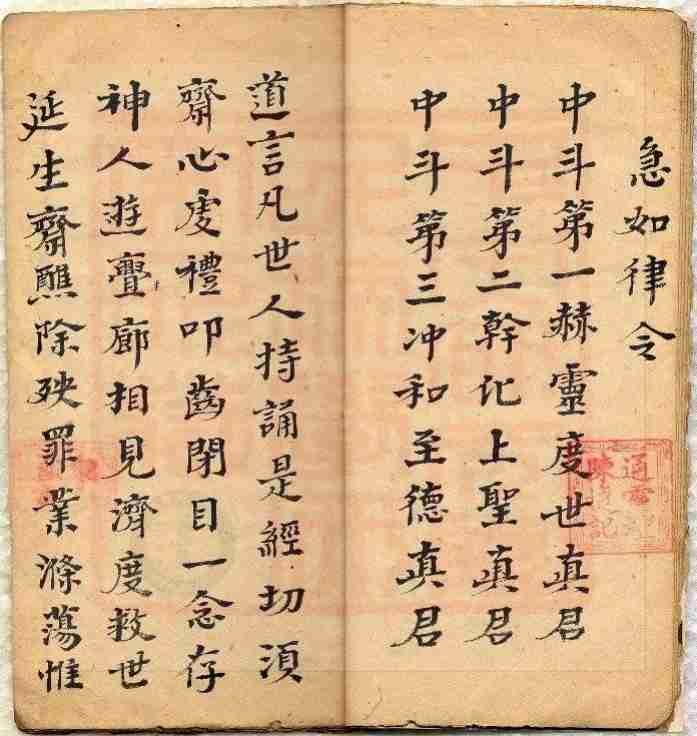 急如律令
中斗第一赫靈度世真君
中斗第二幹化上聖真君
中斗第三冲和至德真君
道言凡世人持誦是經切須
齋心虔禮叩齒閉目一念存
神人遊亹廊相見濟度救世
延生齋醮除殃罪業滌蕩惟